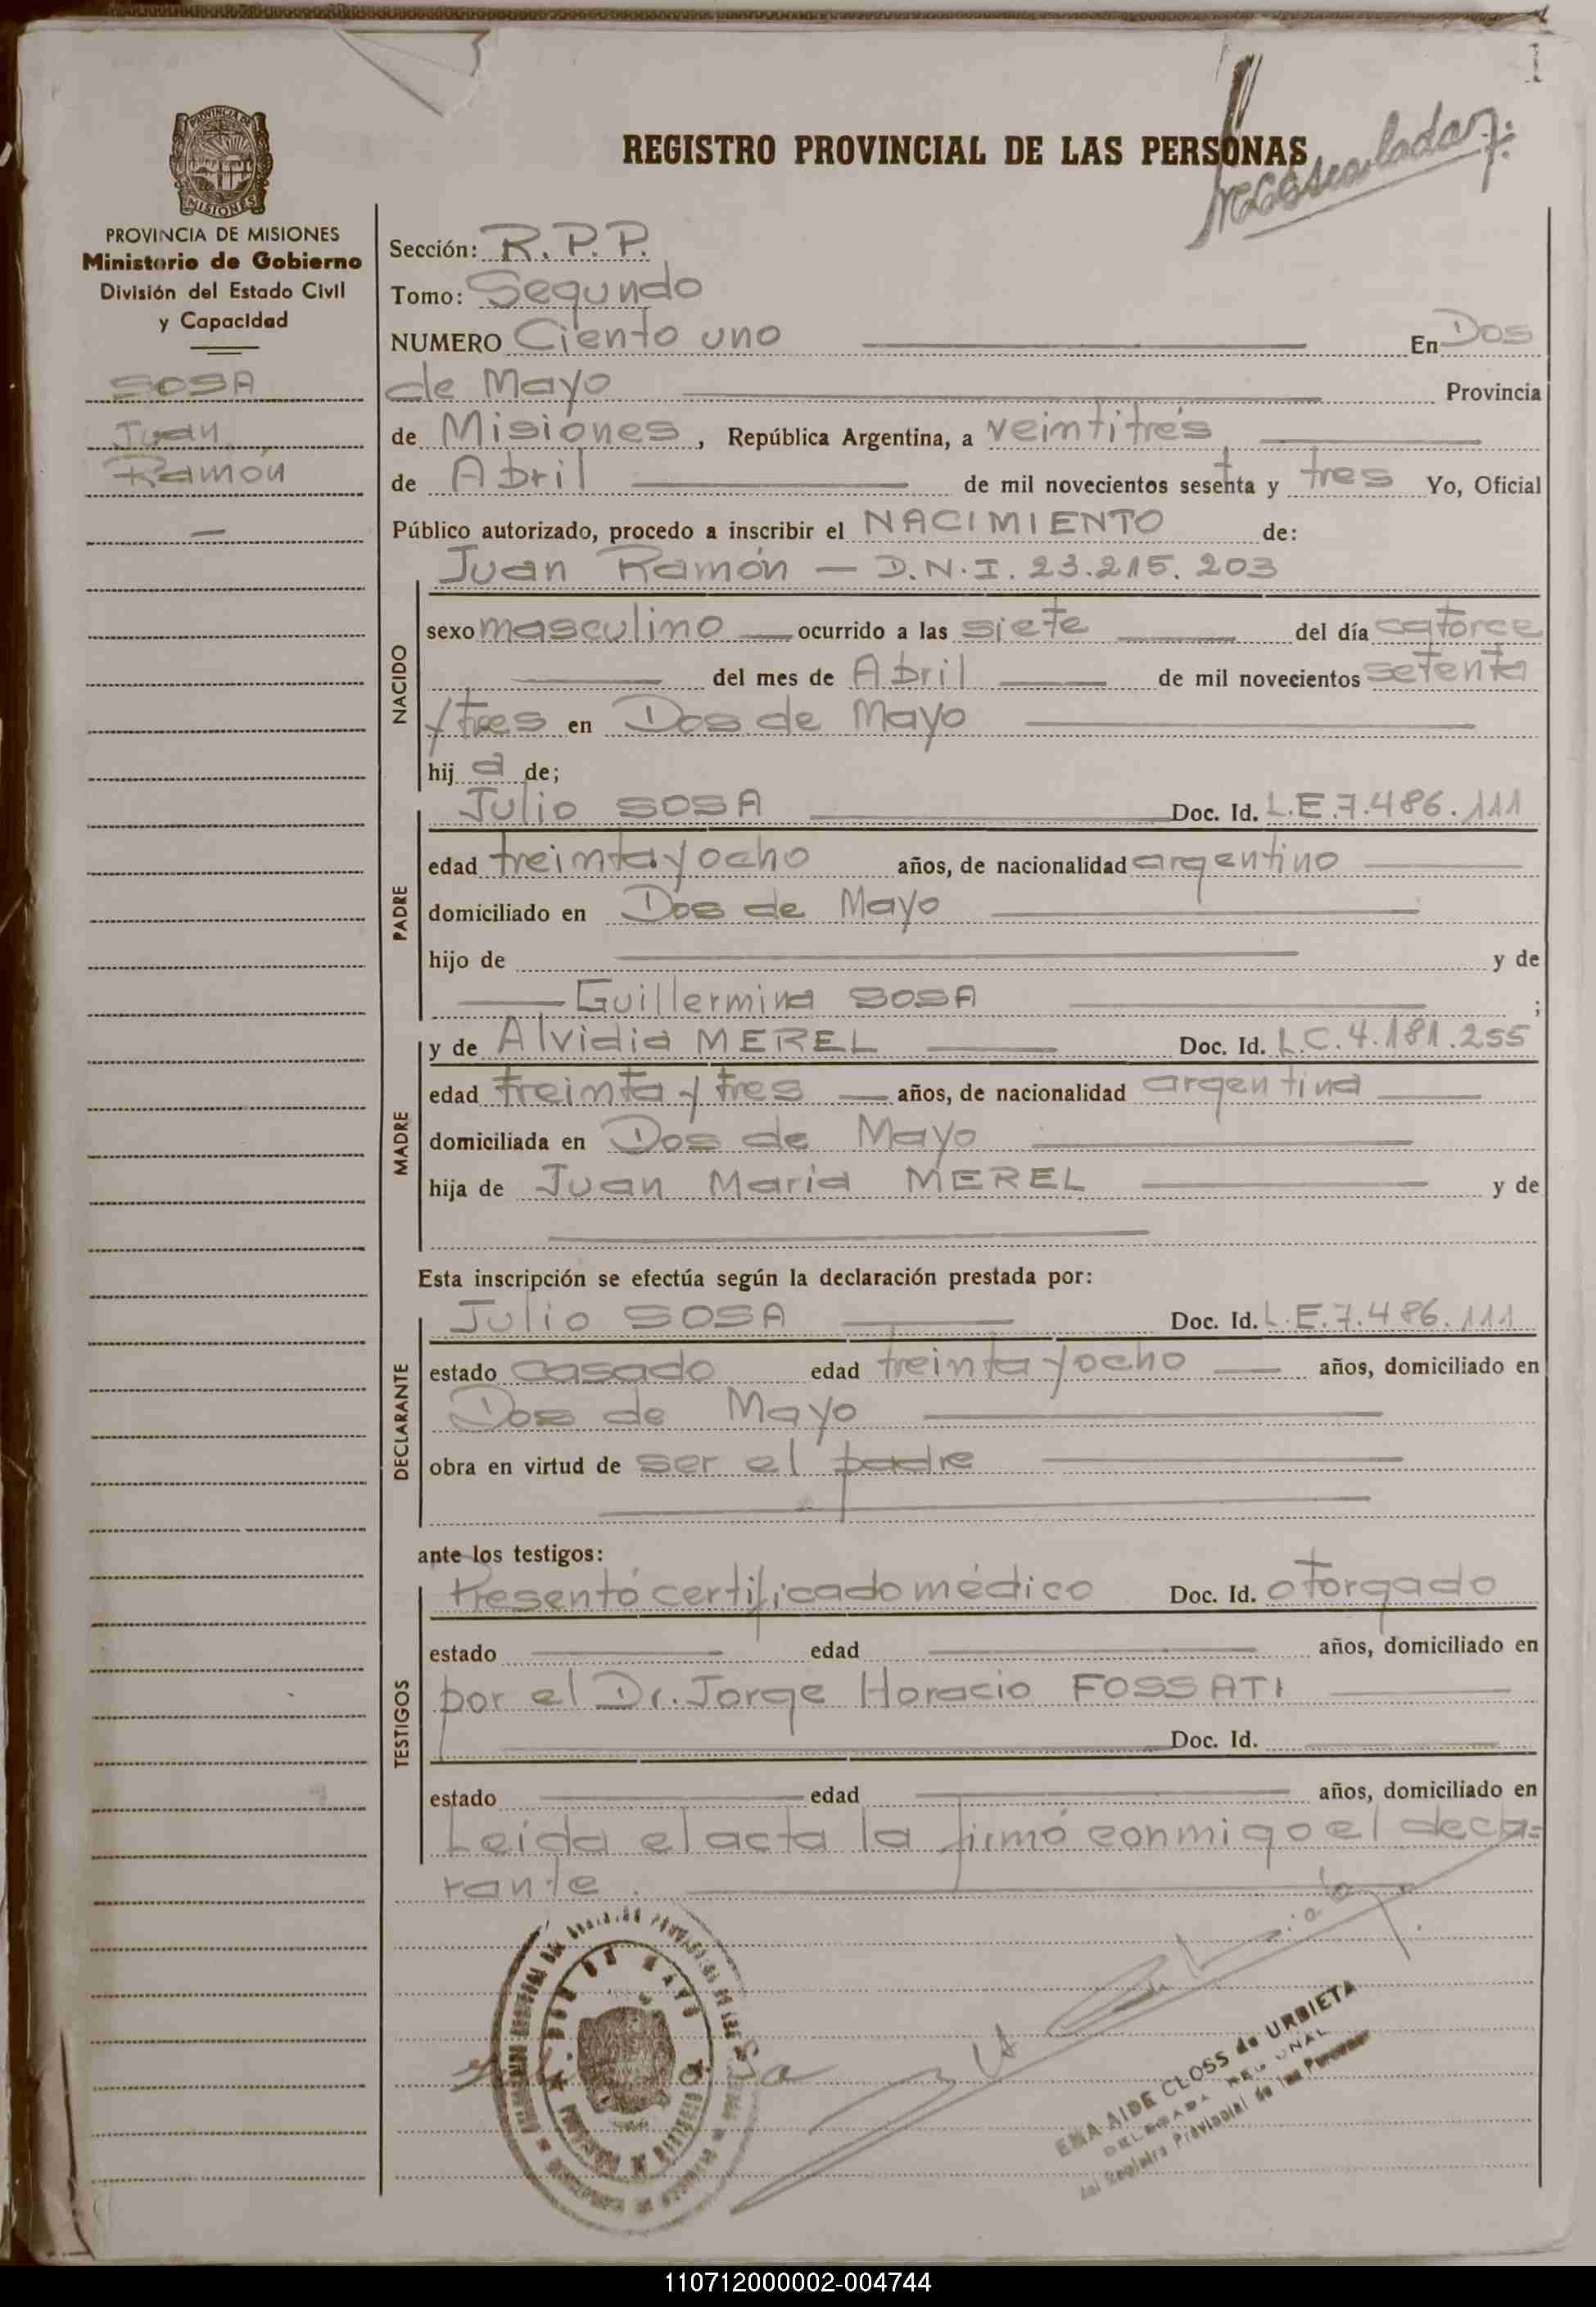 1
REGISTRO PROVINCIAL DE LAS PERSONAS
PROVINCIA DE MISIONES
Ministerio de Gobierno
División del Estado Civil
y Capacidad
SOSA
Juan
Ramón
Sección: R.P.P.
Tomo: Segundo
NUMERO Ciento uno En Dos
de Mayo Provincia
de Misiones, República Argentina, a veintitrés
de Abril de mil novecientos sesenta y tres Yo, Oficial
Público autorizado, procedo a inscribir el NACIMIENTO de:
Juan Ramón — D.N.I. 23.215.203
NACIDO
sexo masculino ocurrido a las siete del día catorce
del mes de Abril de mil novecientos setenta
y tres en Dos de Mayo
hij a de;
PADRE
Julio SOSA Doc. Id. L.E.7.486.111
edad treinta y ocho años, de nacionalidad argentino
domiciliado en Dos de Mayo
hijo de y de
Guillermina SOSA ;
MADRE
y de Alvidia MEREL Doc. Id. L.C.4.181.255
edad treinta y tres años, de nacionalidad argentina
domiciliada en Dos de Mayo
hija de Juan María MEREL y de
Esta inscripción se efectúa según la declaración prestada por:
DECLARANTE
Julio SOSA Doc. Id. L.E.7.486.111
estado casado edad treinta y ocho años, domiciliado en
Dos de Mayo
obra en virtud de ser el padre
ante los testigos:
TESTIGOS
Presentó certificado médico Doc. Id. otorgado
estado edad años, domiciliado en
por el Dr. Jorge Horacio FOSSATI
Doc. Id.
estado edad años, domiciliado en
Leída el acta la firmó conmigo el decla=
rante.
DOS DE MAYO
EMA AIDE CLOSS de URBIETA
DELEGADA REGIONAL
del Registro Provincial de las Personas
110712000002-004744